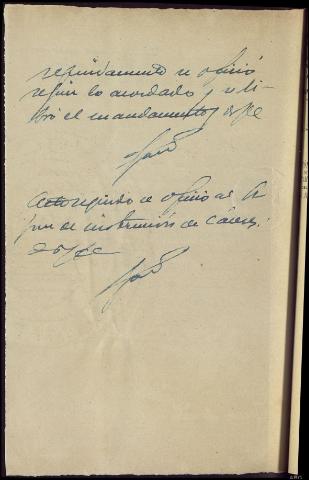 seguidamente se ofició
según lo acordado y se li-
bró el mandamiento doy fe
seguido se ofició al
juez de instrucción de Cáceres
doy fe